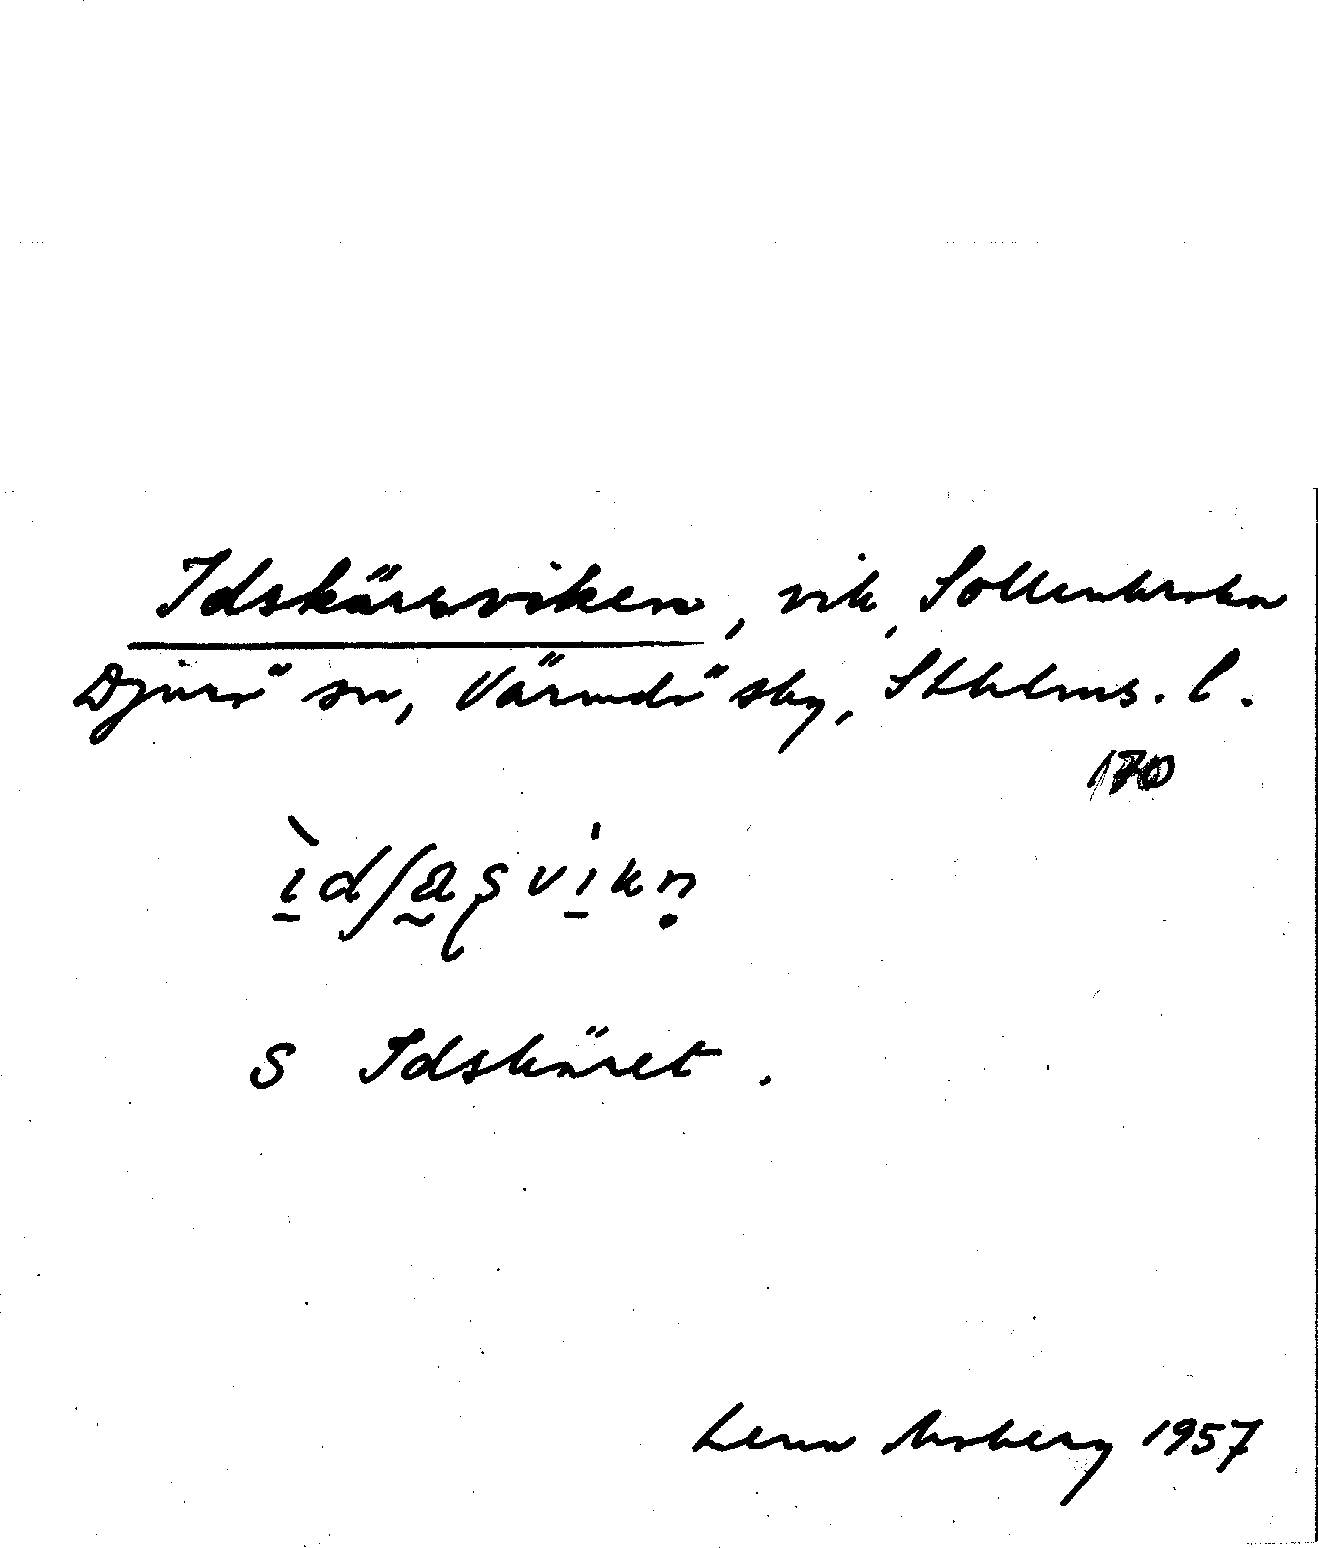 Idskärsviken, vik, Sollenkroka
Djurö sn, Värmdö skg, Sthlms. l.
170
ì̱dʃæ̰ʂvi̱kṇ
S Idskäret.
Lena Moberg 1957